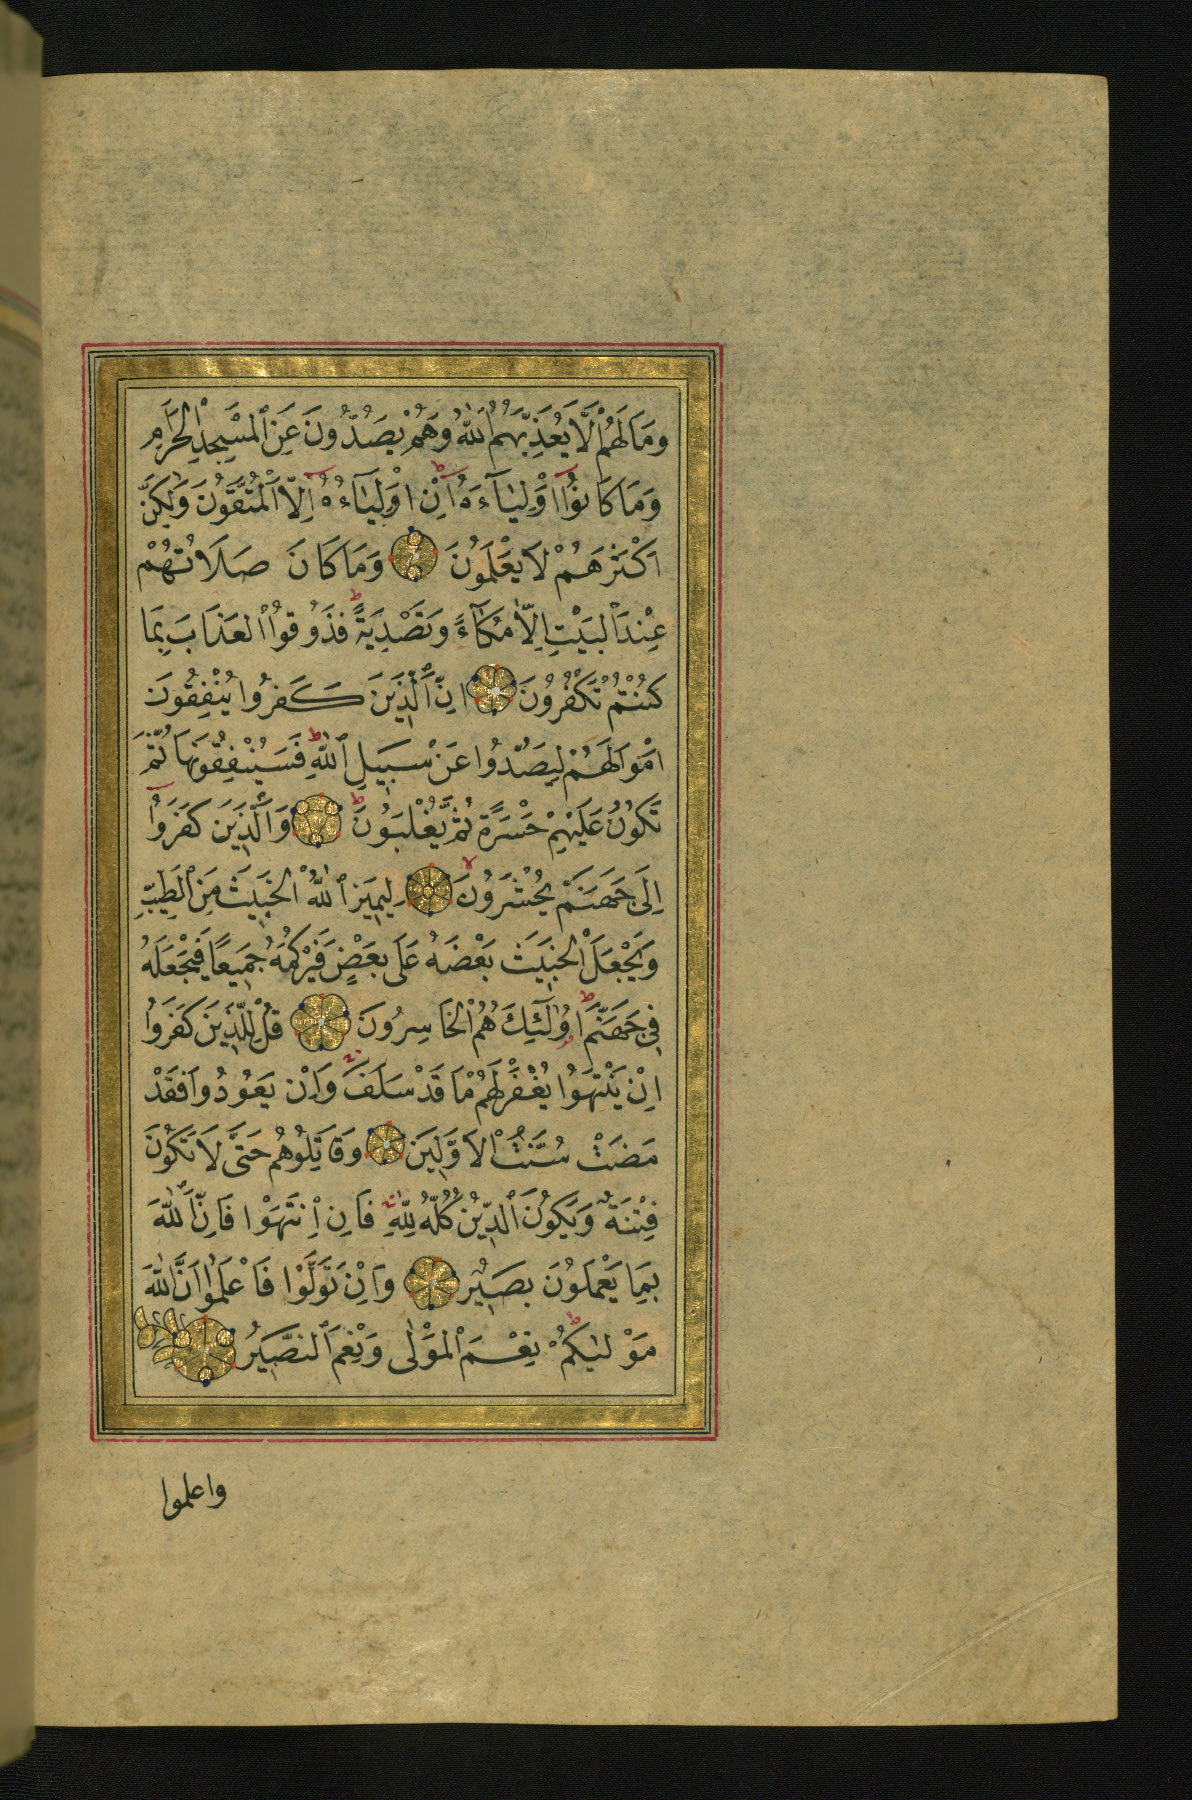 وَمَا لَهُمْ اَلَّا يُعَذِّبَهُمُ اللّٰهُ وَهُمْ يَصُدُّونَ عَنِ الْمَسْجِدِ الْحَرَامِ
وَمَا كَانُوا اَوْلِيَاءَهُ اِنْ اَوْلِيَاءُهُ اِلَّا الْمُتَّقُونَ وَلٰكِنَّ
اَكْثَرَهُمْ لَا يَعْلَمُونَ وَمَا كَانَ صَلَاتُهُمْ
عِنْدَ الْبَيْتِ اِلَّا مُكَاءً وَتَصْدِيَةً فَذُوقُوا الْعَذَابَ بِمَا
كُنْتُمْ تَكْفُرُونَ اِنَّ الَّذِينَ كَفَرُوا يُنْفِقُونَ
اَمْوَالَهُمْ لِيَصُدُّوا عَنْ سَبِيلِ اللّٰهِ فَسَيُنْفِقُونَهَا ثُمَّ
تَكُونُ عَلَيْهِمْ حَسْرَةً ثُمَّ يُغْلَبُونَ وَالَّذِينَ كَفَرُوا
اِلَى جَهَنَّمَ يُحْشَرُونَ لِيَمِيزَ اللّٰهُ الْخَبِيثَ مِنَ الطَّيِّبِ
وَيَجْعَلَ الْخَبِيثَ بَعْضَهُ عَلَى بَعْضٍ فَيَرْكُمَهُ جَمِيعًا فَيَجْعَلَهُ
فِي جَهَنَّمَ اُولٰئِكَ هُمُ الْخَاسِرُونَ قُلْ لِلَّذِينَ كَفَرُوا
اِنْ يَنْتَهُوا يُغْفَرْ لَهُمْ مَا قَدْ سَلَفَ وَاِنْ يَعُودُوا فَقَدْ
مَضَتْ سُنَّتُ الْاَوَّلِينَ وَقَاتِلُوهُمْ حَتَّى لَا تَكُونَ
فِتْنَةٌ وَيَكُونَ الدِّينُ كُلُّهُ لِلّٰهِ فَاِنِ انْتَهَوْا فَاِنَّ اللّٰهَ
بِمَا يَعْمَلُونَ بَصِيرٌ وَاِنْ تَوَلَّوْا فَاعْلَمُوا اَنَّ اللّٰهَ
مَوْلٰيكُمْ نِعْمَ الْمَوْلٰى وَنِعْمَ النَّصِيرُ
واعلموا